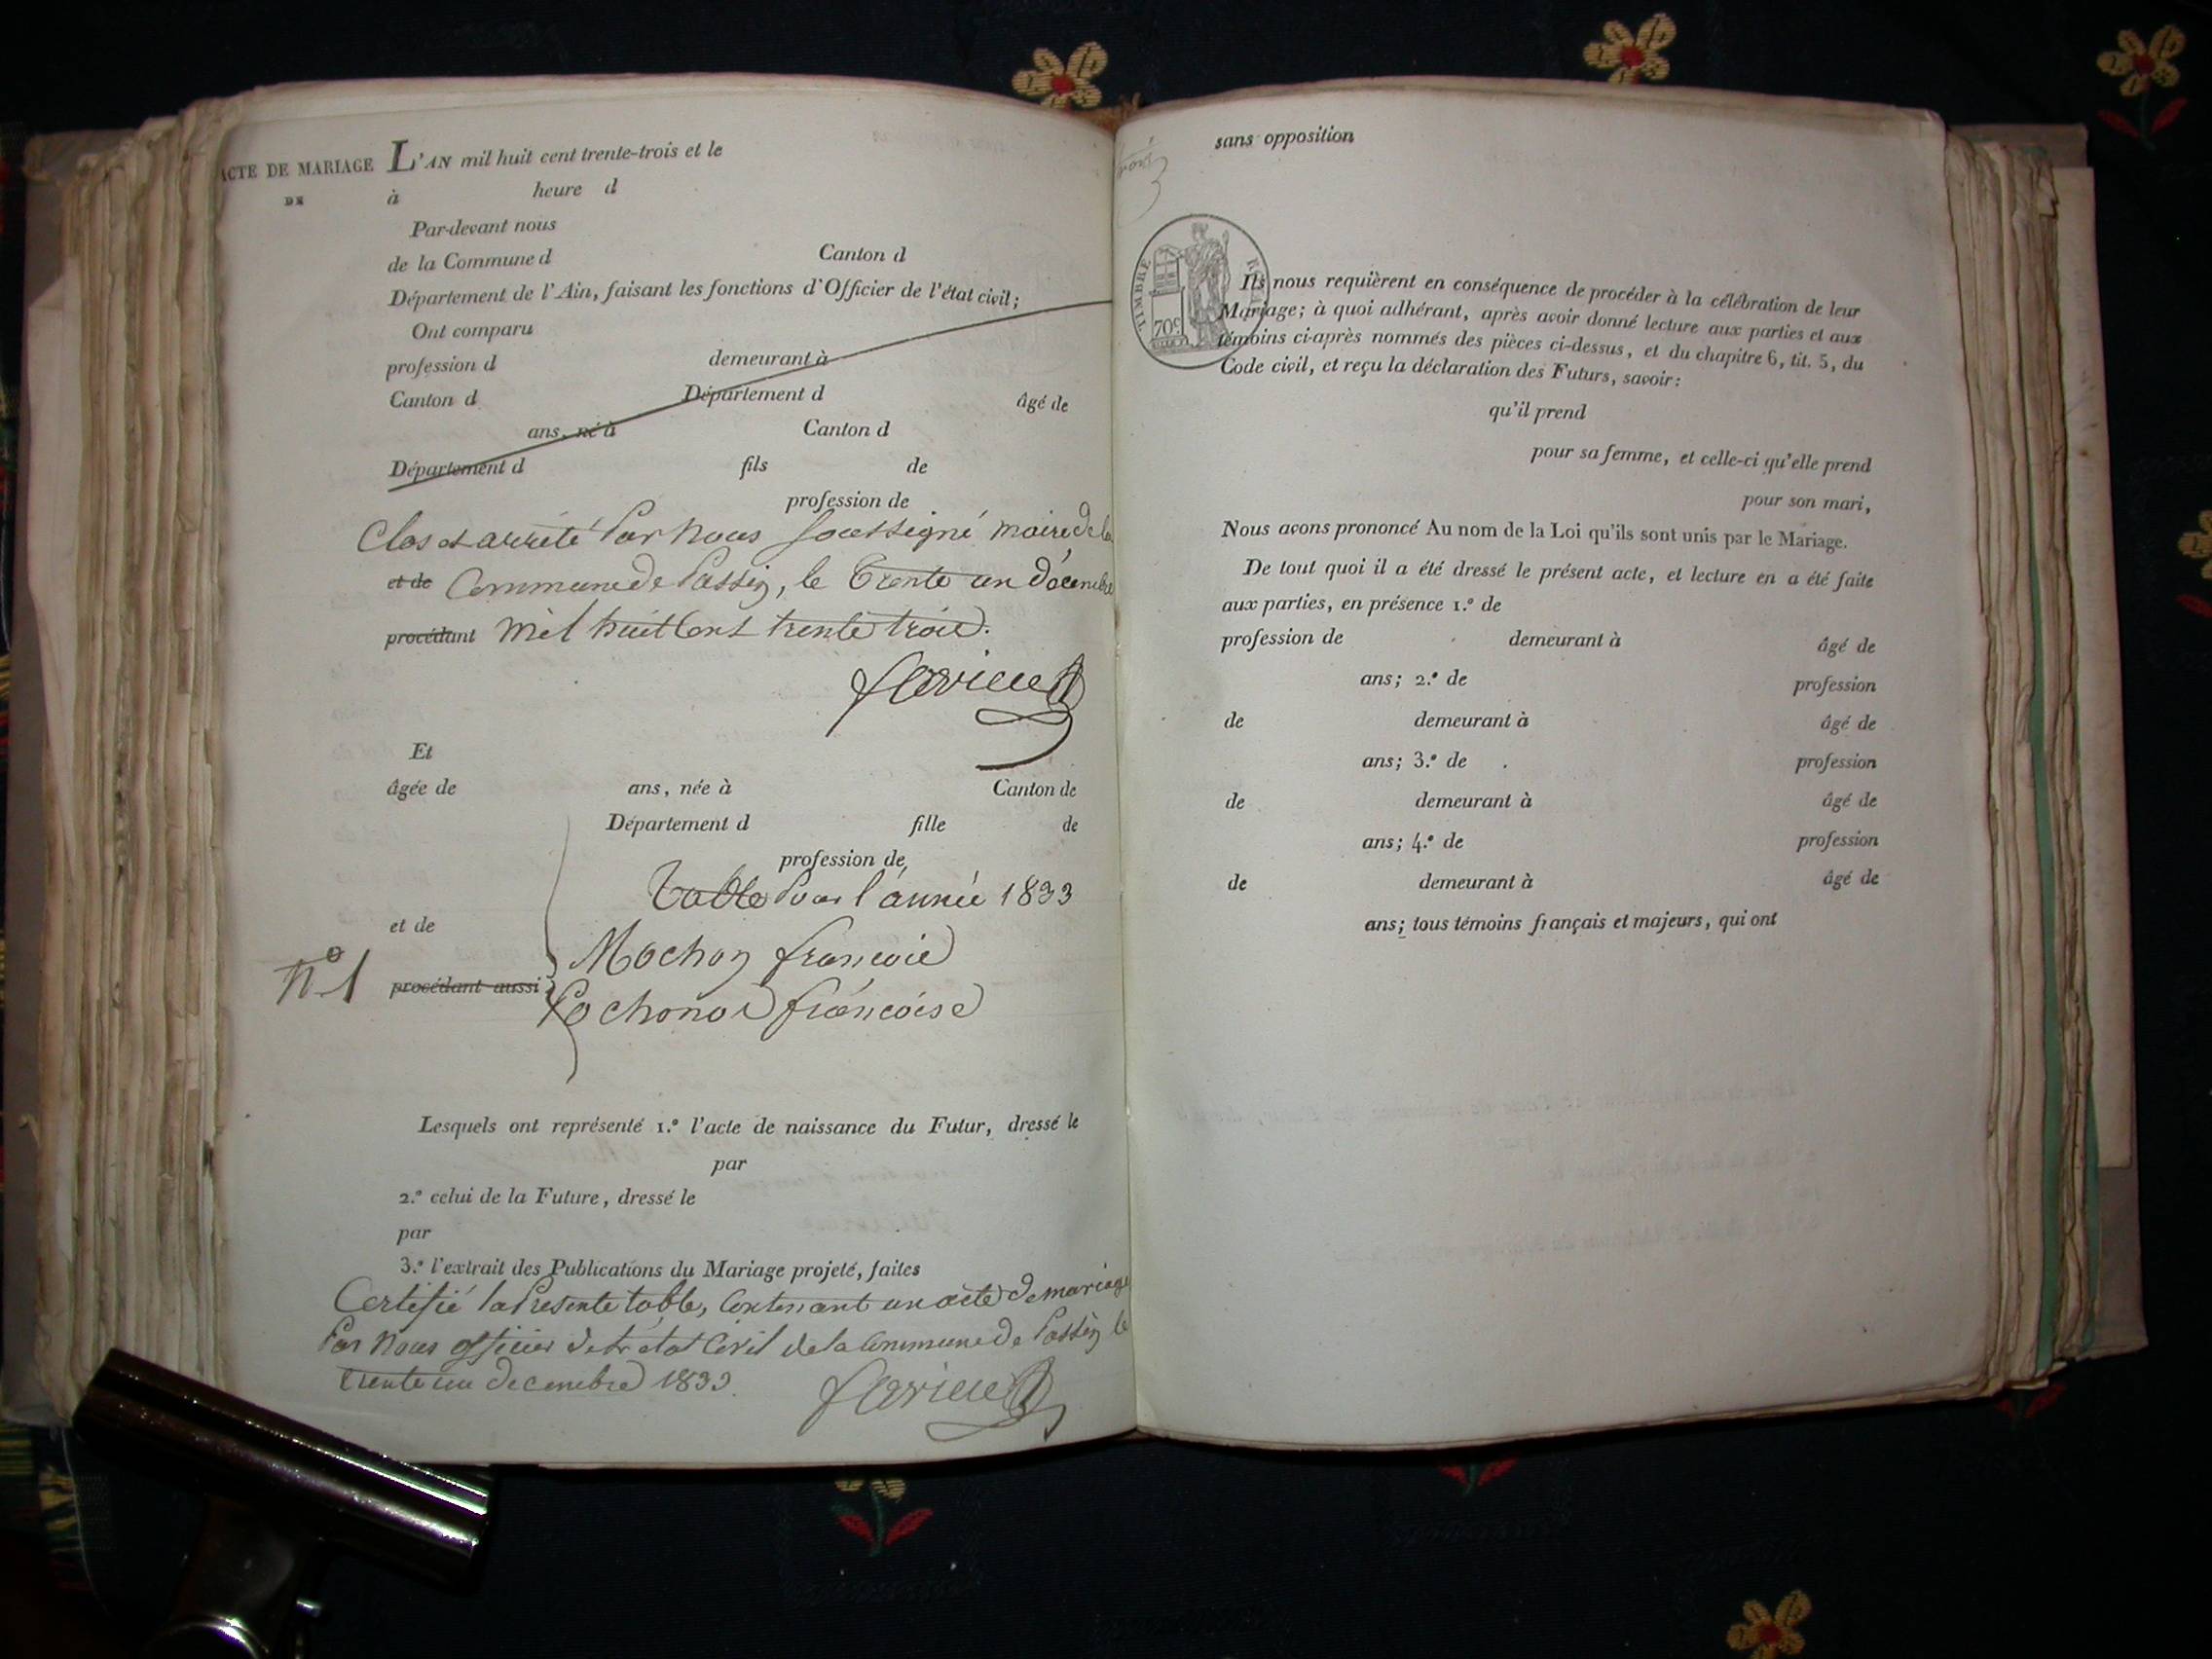 ACTE DE MARIAGE L'AN mil huit cent trente-trois et le
DE à heure d
Par-devant nous
de la Commune d Canton d
Département de l'Ain, faisant les fonctions d'Officier de l'état civil;
Ont comparu
profession d demeurant à
Canton d Département d âgé de
ans, né à Canton d
Département d fils de
profession de
Clos et arrêté Par Nous Soussigné maire de la
et de Commune de Passin, le Trente un décembre
procédant mil huit Cent trente trois.
Et
âgée de ans, née à Canton de
Département d fille de
profession de
Table Pour l'année 1833
et de
Mochon françois
N° 1 procédant aussi
françoise
Lesquels ont représenté 1.° l'acte de naissance du Futur, dressé le
par
2.° celui de la Future, dressé le
par
3.° l'extrait des Publications du Mariage projeté, faites
Certifié la Présente table, Contenant un acte de mariage
Par Nous officier de l'état Civil de la Commune de Passin le
trente un décembre 1833.
sans opposition
TIMBRE
70c
Ils nous requièrent en conséquence de procéder à la célébration de leur
Mariage; à quoi adhérant, après avoir donné lecture aux parties et aux
témoins ci-après nommés des pièces ci-dessus, et du chapitre 6, tit. 5, du
Code civil, et reçu la déclaration des Futurs, savoir:
qu'il prend
pour sa femme, et celle-ci qu'elle prend
pour son mari,
Nous avons prononcé Au nom de la Loi qu'ils sont unis par le Mariage.
De tout quoi il a été dressé le présent acte, et lecture en a été faite
aux parties, en présence 1.° de
profession de demeurant à âgé de
ans; 2.° de profession
de demeurant à âgé de
ans; 3.° de profession
de demeurant à âgé de
ans; 4.° de profession
de demeurant à âgé de
ans; tous témoins français et majeurs, qui ont